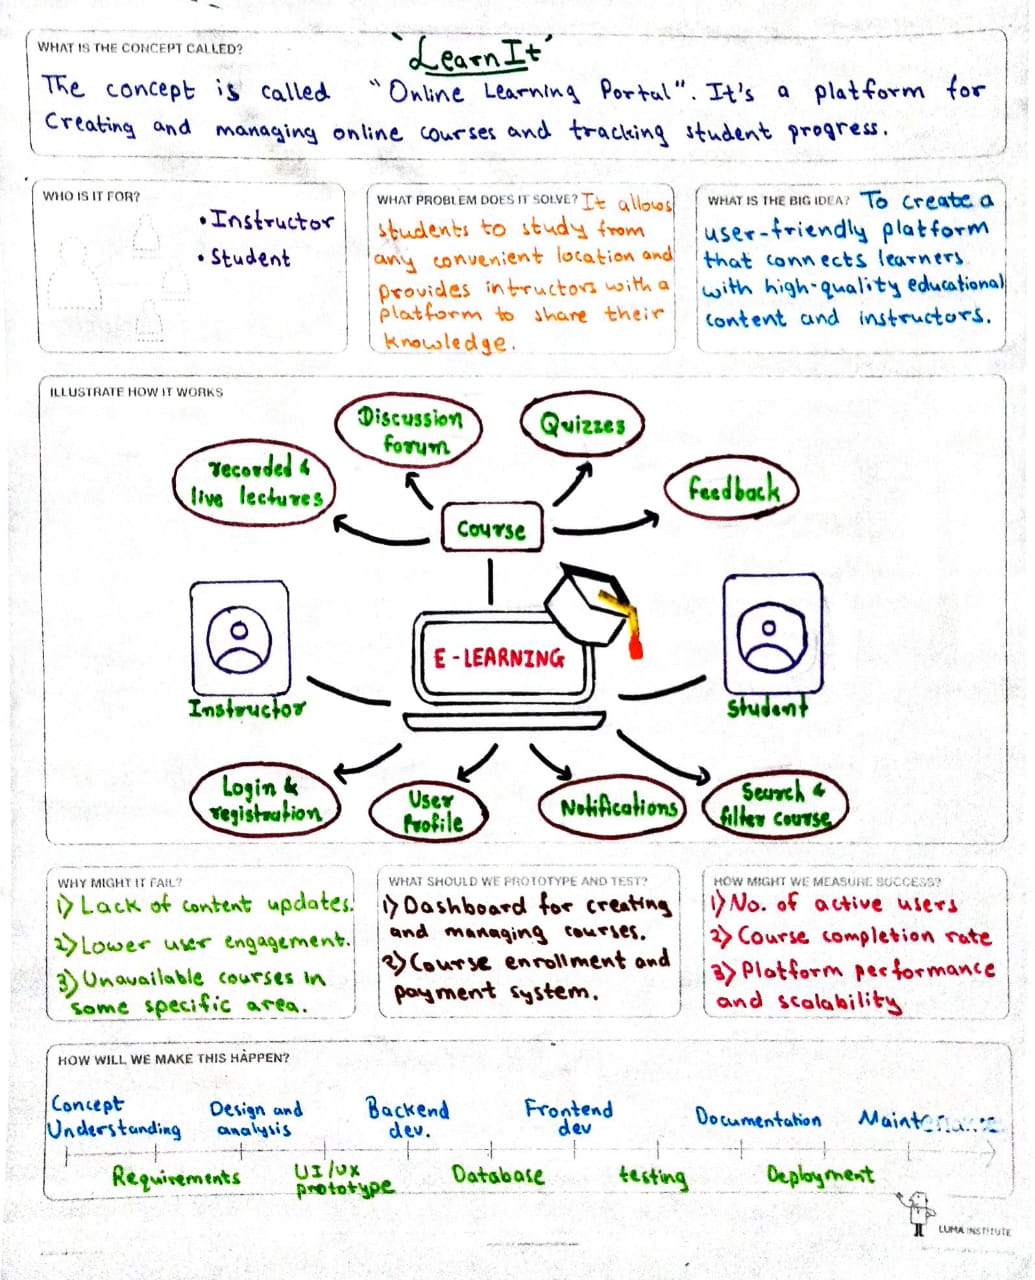 'LearnIt'
WHAT IS THE CONCEPT CALLED?
The concept is called "Online Learning Portal". It's a platform for
Creating and managing online courses and tracking student progress.
WHO IS IT FOR?
• Instructor
• Student
WHAT PROBLEM DOES IT SOLVE? It allows
students to study from
any convenient location and
provides intructors with a
platform to share their
knowledge.
WHAT IS THE BIG IDEA? To create a
user-friendly platform
that connects learners
with high-quality educational
content and instructors.
ILLUSTRATE HOW IT WORKS
Discussion
forum
Quizzes
recorded &
live lectures
Feedback
Course
E-LEARNING
Instructor
Student
Login &
registration
User
Profile
Notifications
Search &
filter course
WHY MIGHT IT FAIL?
1) Lack of content updates.
2) Lower user engagement.
3) Unavailable courses in
some specific area.
WHAT SHOULD WE PROTOTYPE AND TEST?
1) Dashboard for creating
and managing courses.
2) Course enrollment and
payment system.
HOW MIGHT WE MEASURE SUCCESS?
1) No. of active users
2) Course completion rate
3) Platform performance
and scalability
HOW WILL WE MAKE THIS HAPPEN?
Concept
Understanding
Design and
analysis
Backend
dev.
Frontend
dev
Documentation
Maintenance
Requirements
UI/UX
prototype
Database
testing
Deployment
LUMA INSTITUTE